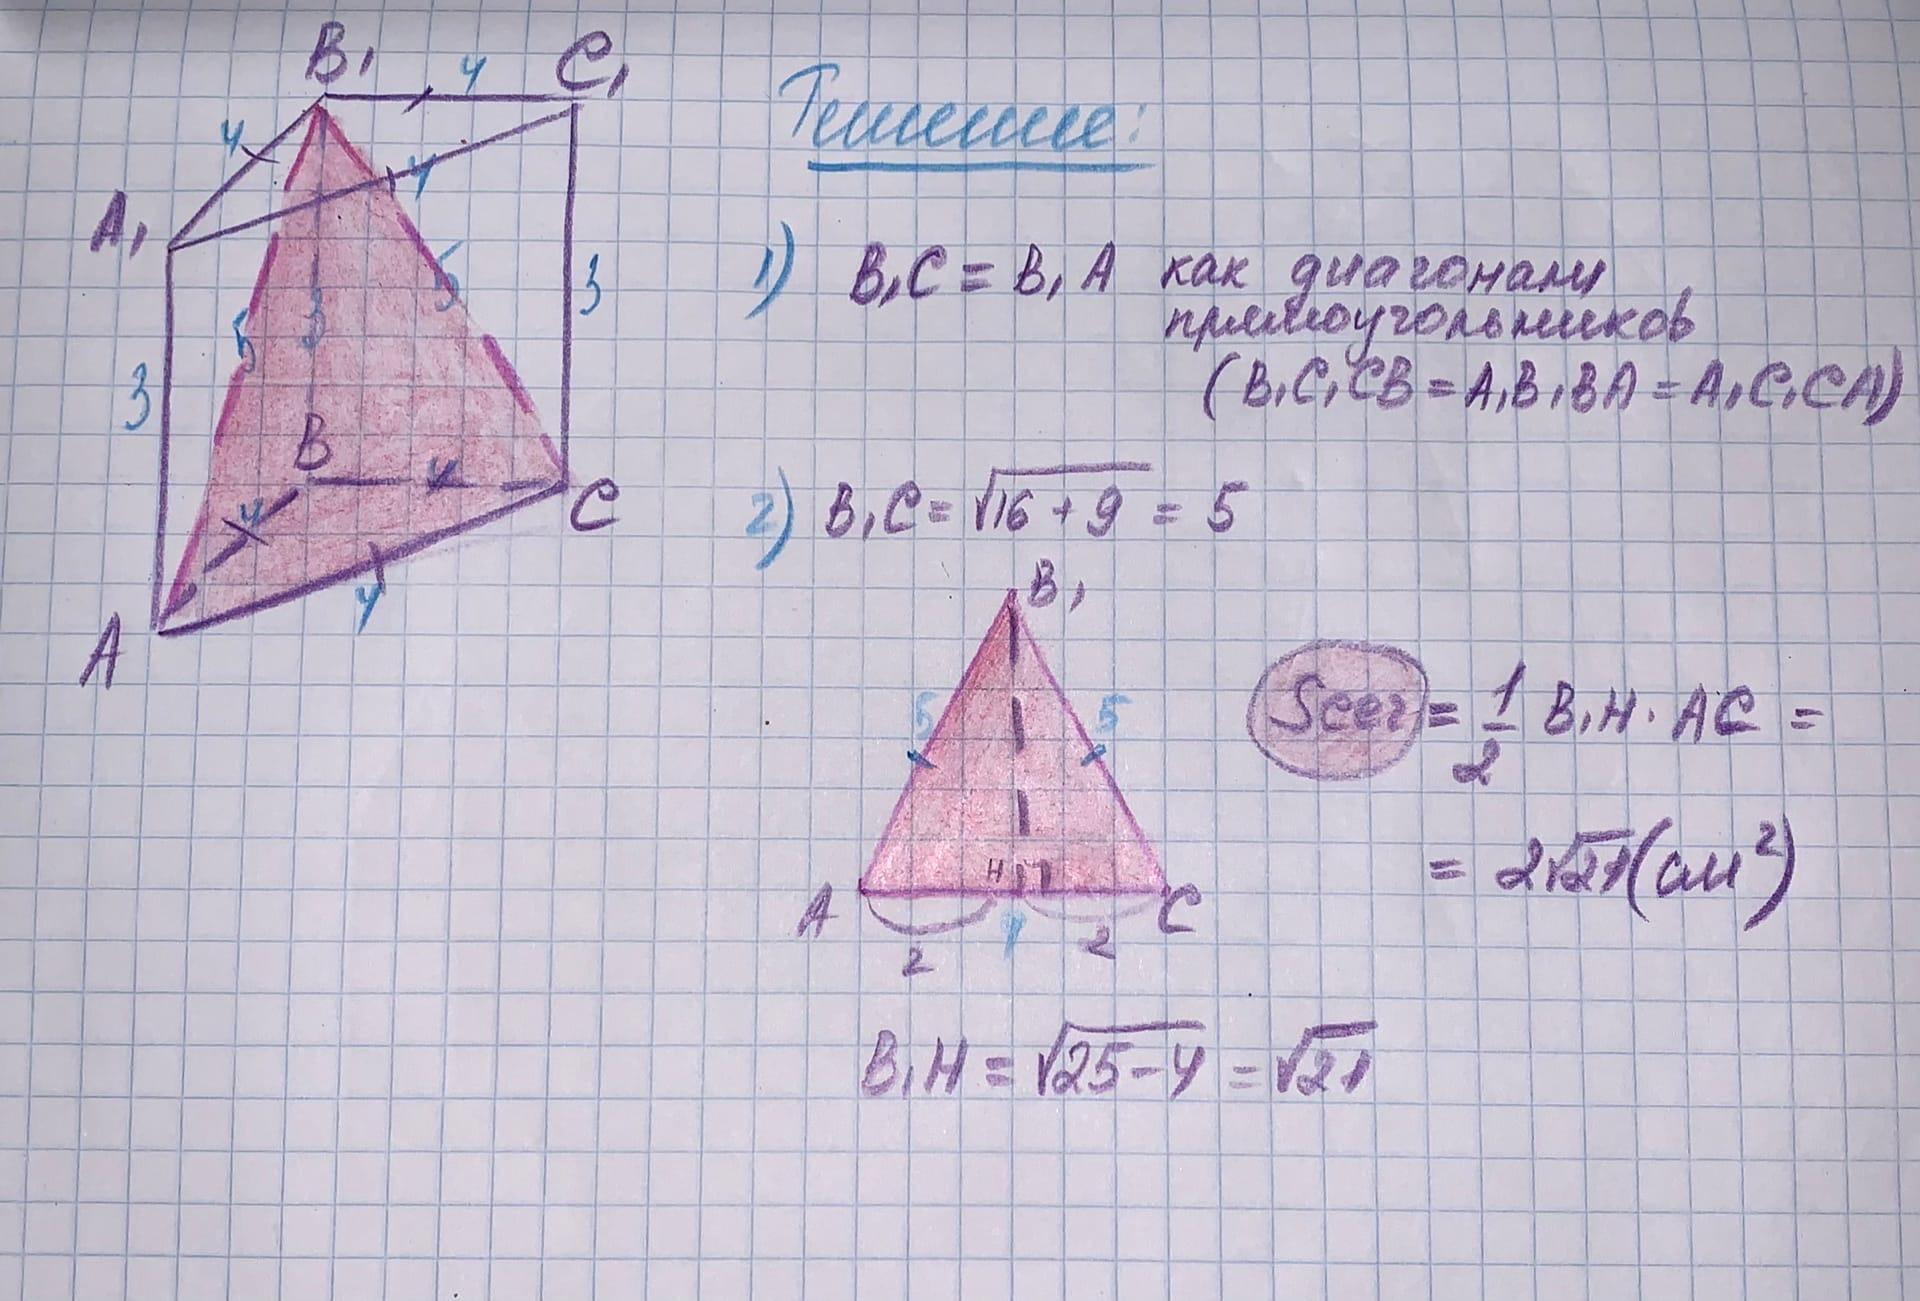 B₁ 4 C₁
4
4
A₁
5
3
5
3
3
B
4
4
C
4
A
Решение:
1) B₁C = B₁A как диагонали
прямоугольников
(B₁C₁CB = A₁B₁BA = A₁C₁CA)
2) B₁C = √16 + 9 = 5
B₁
5 5
H
A C
2 4 2
Sсеч = 1/2 B₁H · AC =
= 2√21 (см²)
B₁H = √25 - 4 = √21